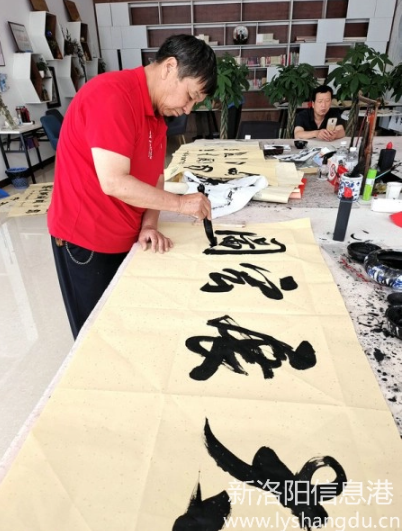 大展宏圖
新洛阳信息港
www.lyshangdu.cn